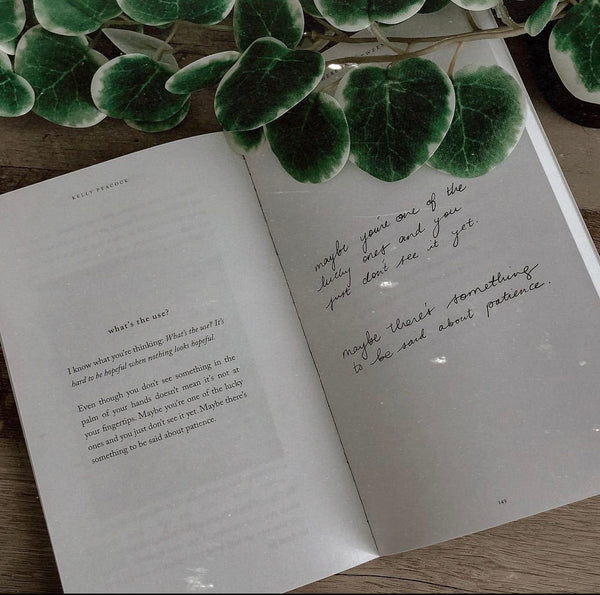 KELLY PEACOCK
what's the use?
I know what you're thinking: What's the use? It's
hard to be hopeful when nothing looks hopeful.
Even though you don't see something in the
palm of your hands doesn't mean it's not at
your fingertips. Maybe you're one of the lucky
ones and you just don't see it yet. Maybe there's
something to be said about patience.
maybe you're one of the
lucky ones and you
just don't see it yet.
maybe there's something
to be said about patience.
143